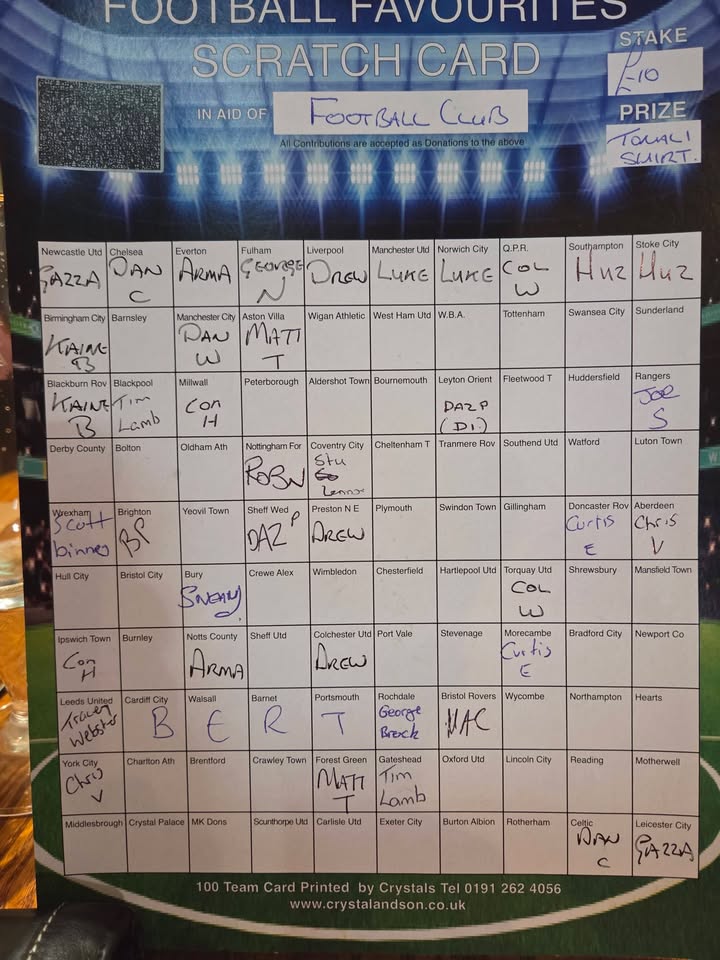 FOOTBALL FAVOURITES
SCRATCH CARD
STAKE
£10
IN AID OF FOOTBALL CLUB
PRIZE
TONALI
SHIRT.
All Contributions are accepted as Donations to the above
Newcastle Utd Chelsea Everton Fulham Liverpool Manchester Utd Norwich City Q.P.R. Southampton Stoke City
GAZZA DAN C ARMA GEORGE N DREW LUKE LUKE COL W HUZ HUZ
Birmingham City Barnsley Manchester City Aston Villa Wigan Athletic West Ham Utd W.B.A. Tottenham Swansea City Sunderland
KAINE B DAN W MATT T
Blackburn Rov Blackpool Millwall Peterborough Aldershot Town Bournemouth Leyton Orient Fleetwood T Huddersfield Rangers
KAINE B Tim Lamb Con H DAZ P (DI) JOE S
Derby County Bolton Oldham Ath Nottingham For Coventry City Cheltenham T Tranmere Rov Southend Utd Watford Luton Town
ROBN Stu Lennox
Wrexham Brighton Yeovil Town Sheff Wed Preston N E Plymouth Swindon Town Gillingham Doncaster Rov Aberdeen
Scott binnes BP DAZ P DREW Curtis E Chris V
Hull City Bristol City Bury Crewe Alex Wimbledon Chesterfield Hartlepool Utd Torquay Utd Shrewsbury Mansfield Town
COL W
Ipswich Town Burnley Notts County Sheff Utd Colchester Utd Port Vale Stevenage Morecambe Bradford City Newport Co
Con H ARMA DREW Curtis E
Leeds United Cardiff City Walsall Barnet Portsmouth Rochdale Bristol Rovers Wycombe Northampton Hearts
Tracey Webster B E R T George Brock MAC
York City Charlton Ath Brentford Crawley Town Forest Green Gateshead Oxford Utd Lincoln City Reading Motherwell
Chris V MATT T Tim Lamb
Middlesbrough Crystal Palace MK Dons Scunthorpe Utd Carlisle Utd Exeter City Burton Albion Rotherham Celtic Leicester City
DAN C GAZZA
100 Team Card Printed by Crystals Tel 0191 262 4056
www.crystalandson.co.uk